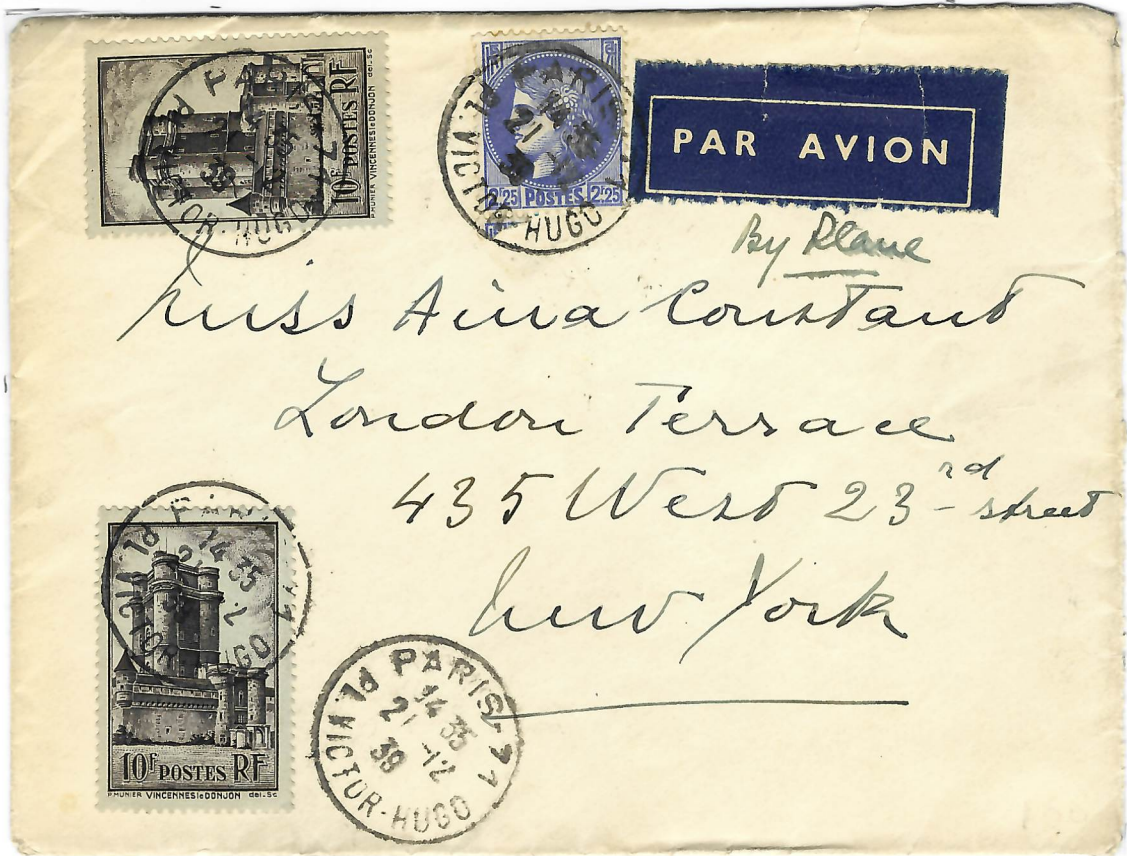 10f POSTES RF
P.MUNIER VINCENNES leDONJON del.-Sc
PARIS
PL. VICTOR-HUGO
2f25 POSTES 2f25
PARIS
PL. VICTOR-HUGO
PAR AVION
By Plane
Miss Aina Constant
London Terrace
435 West 23rd street
New York
PARIS
14 35
21 -12
39
PL. VICTOR-HUGO
10f POSTES RF
P.MUNIER VINCENNES leDONJON del.-Sc
PARIS-71
14 35
21 -12
39
PL. VICTOR-HUGO